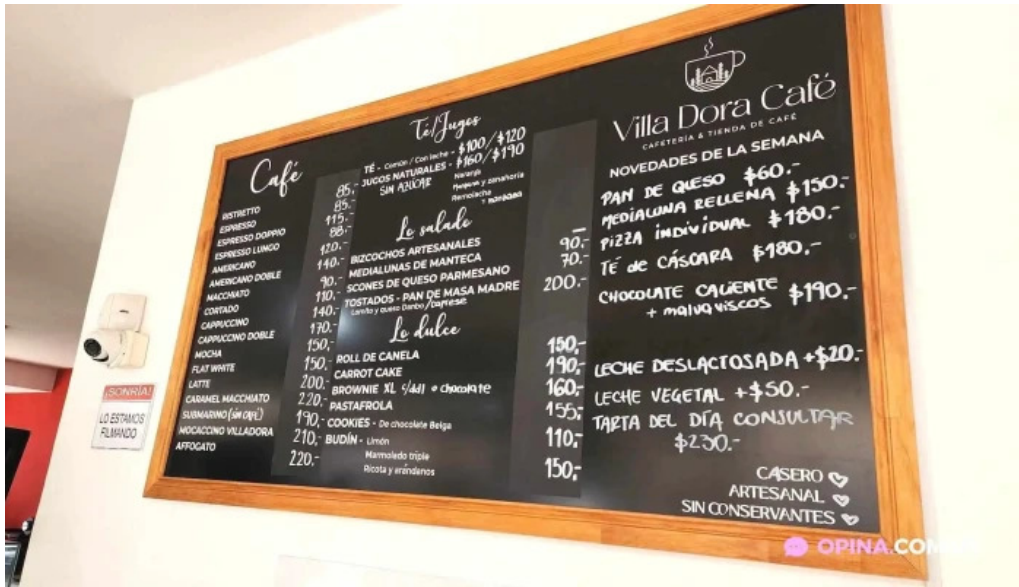 Café
RISTRETTO 85.-
ESPRESSO 85.-
ESPRESSO DOPPIO 115.-
ESPRESSO LUNGO 88.-
AMERICANO 120.-
AMERICANO DOBLE 140.-
MACCHIATO 90.-
CORTADO 110.-
CAPPUCCINO 140.-
CAPPUCCINO DOBLE 170.-
MOCHA 150.-
FLAT WHITE 150.-
LATTE 200.-
CARAMEL MACCHIATO 220.-
SUBMARINO (sin café) 190.-
MOCACCINO VILLADORA 210.-
AFFOGATO 220.-
Té/Jugos
TÉ - Común / Con leche - $100/$120
JUGOS NATURALES - $160/$190
SIN AZÚCAR
Naranja
Manzana y zanahoria
Remolacha
y manzana
Lo salado
BIZCOCHOS ARTESANALES —
MEDIALUNAS DE MANTECA 90.-
SCONES DE QUESO PARMESANO 70.-
TOSTADOS - PAN DE MASA MADRE 200.-
Lomito y queso Danbo/caprese
Lo dulce
ROLL DE CANELA 150.-
CARROT CAKE 190.-
BROWNIE XL c/ddl o chocolate 160.-
PASTAFROLA 155.-
COOKIES - De chocolate Belga 110.-
BUDÍN - Limón
Marmolado triple 150.-
Ricota y arándanos
Villa Dora Café
CAFETERÍA & TIENDA DE CAFÉ
NOVEDADES DE LA SEMANA
PAN DE QUESO $60.-
MEDIALUNA RELLENA $150.-
PIZZA INDIVIDUAL $180.-
TÉ de CÁSCARA $180.-
CHOCOLATE CALIENTE
+ malvaviscos $190.-
LECHE DESLACTOSADA +$20.-
LECHE VEGETAL +$50.-
TARTA DEL DÍA CONSULTAR
$230.-
CASERO
ARTESANAL
SIN CONSERVANTES
¡SONRÍA!
LO ESTAMOS
FILMANDO
OPINA.COM